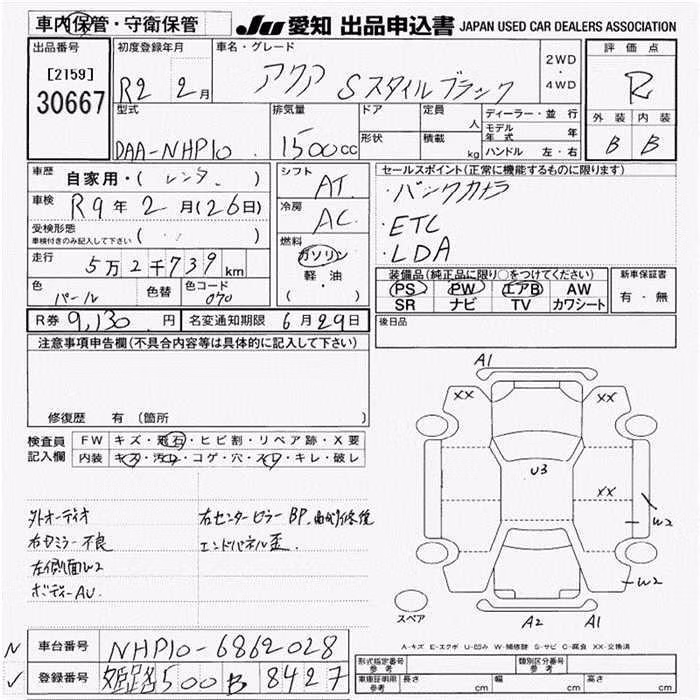 車内保管・守衛保管
JU 愛知 出品申込書 JAPAN USED CAR DEALERS ASSOCIATION
出品番号
[2159]
30667
初度登録年月
R2 2月
車名・グレード
アクア Sスタイルブラック
2WD
・
4WD
評価点
R
外装 内装
B B
型式
DAA-NHP10
排気量
1500cc
ドア
形状
定員 人
積載 kg
ディーラー・並行
モデル年式 年
ハンドル 左・右
車歴
自家用・( レンタ )
車検 R9年2月(26日)
受検形態
車検付きのみ記入して下さい ( )
走行
5万2千739km
色 パール 色替 色コード 070
シフト AT
冷房 AC
燃料
ガソリン
軽・油
( ・ )
セールスポイント(正常に機能するものに限ります)
・バックカメラ
・ETC
・LDA
装備品(純正品に限り○をつけてください)
PS PW エアB AW
SR ナビ TV カワシート
新車保証書
有・無
R券 9,130円 名変通知期限 6月29日
後日品
注意事項申告欄(不具合内容等は具体的に記入して下さい)
修復歴 有(箇所 )
検査員 記入欄
FW キズ・飛石・ヒビ割・リペア跡・X要
内装 キズ・汚れ・コゲ・穴・スレ・キレ・破レ
外オーディオ
右ミラー不良
左側面W2
ボディーAU.
右センターピラーBP.曲がり修復
エンドパネル歪.
A1
XX XX
U3
XX
W2
W2
A2 A1
スペア
A-キズ E-エクボ U-凹み W-補修跡 S-サビ C-腐食 XX-交換済
N 車台番号 NHP10-6862028
✓ 登録番号 姫路500 B 8427
形式指定番号 参考
類別区分番号 参考
車庫証明用 参考 長さ cm 幅 cm 高さ cm